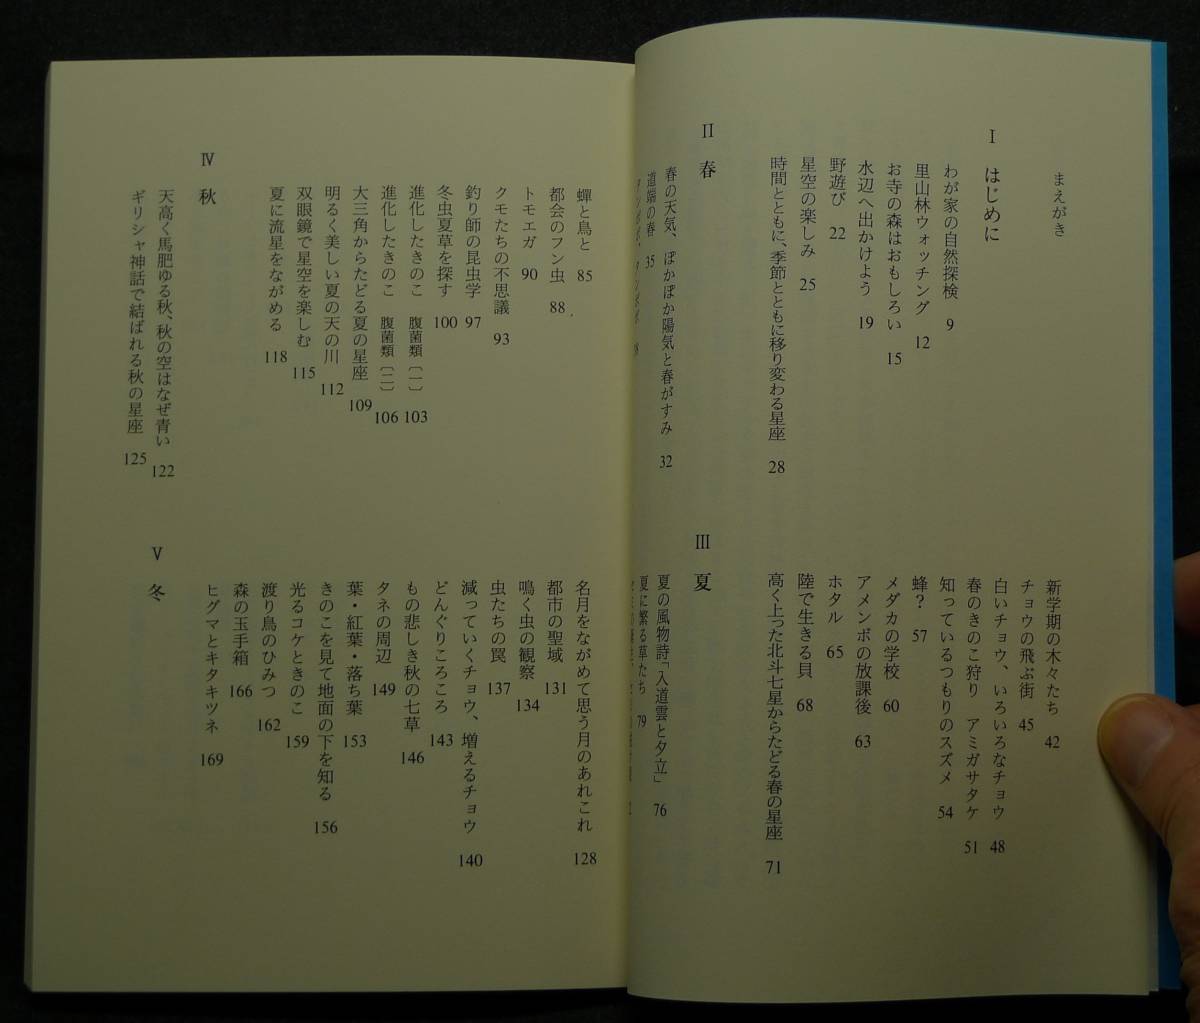 まえがき
Ⅰ　はじめに
わが家の自然探検　9
里山林ウォッチング　12
お寺の森はおもしろい　15
水辺へ出かけよう　19
野遊び　22
星空の楽しみ　25
時間とともに、季節とともに移り変わる星座　28
Ⅱ　春
春の天気、ぽかぽか陽気と春がすみ　32
道端の春　35
新学期の木々たち　42
チョウの飛ぶ街　45
白いチョウ、いろいろなチョウ　48
春のきのこ狩り　アミガサタケ　51
知っているつもりのスズメ　54
蜂？　57
メダカの学校　60
アメンボの放課後　63
ホタル　65
陸で生きる貝　68
高く上った北斗七星からたどる春の星座　71
Ⅲ　夏
夏の風物詩「入道雲と夕立」　76
夏に繁る草たち　79
蟬と鳥と　85
都会のフン虫　88
トモエガ　90
クモたちの不思議　93
釣り師の昆虫学　97
冬虫夏草を探す　100
進化したきのこ　腹菌類〔一〕　103
進化したきのこ　腹菌類〔二〕　106
大三角からたどる夏の星座　109
明るく美しい夏の天の川　112
双眼鏡で星空を楽しむ　115
夏に流星をながめる　118
Ⅳ　秋
天高く馬肥ゆる秋、秋の空はなぜ青い　122
ギリシャ神話で結ばれる秋の星座　125
名月をながめて思う月のあれこれ　128
都市の聖域　131
鳴く虫の観察　134
虫たちの罠　137
減っていくチョウ、増えるチョウ　140
どんぐりころころ　143
もの悲しき秋の七草　146
タネの周辺　149
葉・紅葉・落ち葉　153
きのこを見て地面の下を知る　156
光るコケときのこ　159
渡り鳥のひみつ　162
森の玉手箱　166
ヒグマとキタキツネ　169
Ⅴ　冬